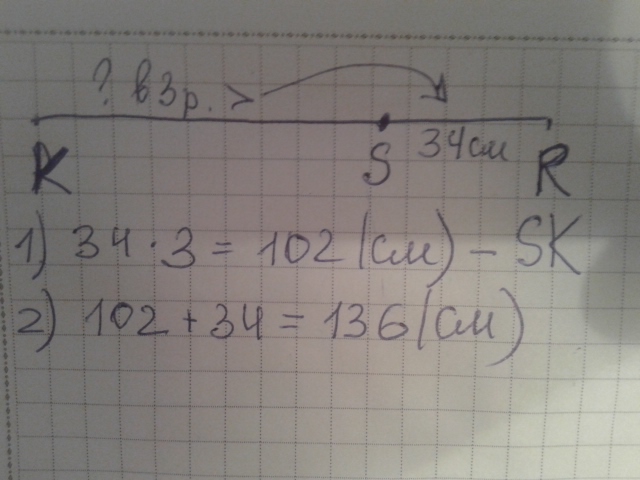 ? в 3 р. >
34 см
K S R
1) 34 · 3 = 102 (см) – SK
2) 102 + 34 = 136 (см)